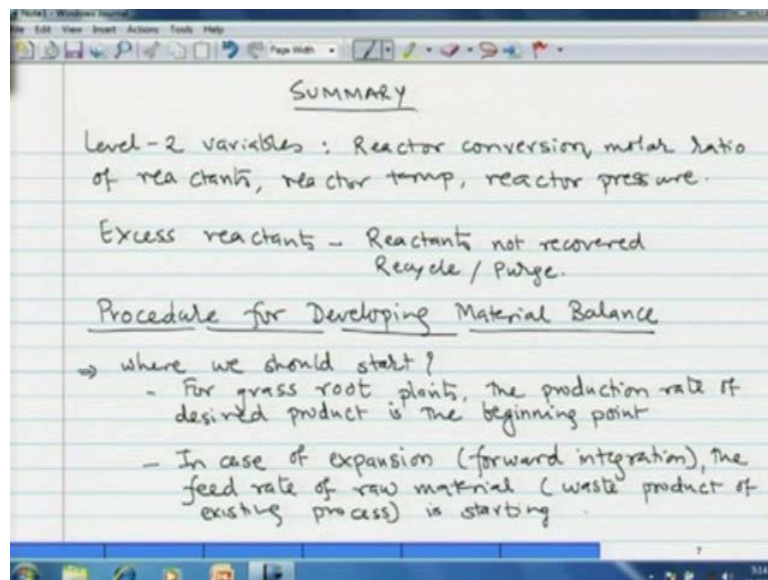 Note1 - Windows Journal
File Edit View Insert Actions Tools Help
Page Width
SUMMARY
Level-2 variables : Reactor conversion, molar ratio
of reactants, reactor temp, reactor pressure.
Excess reactants – Reactants not recovered
Recycle / Purge.
Procedure for Developing Material Balance
⇒ where we should start?
- For grass root plants, the production rate of
desired product is the beginning point
- In case of expansion (forward integration), the
feed rate of raw material (waste product of
existing process) is starting
7